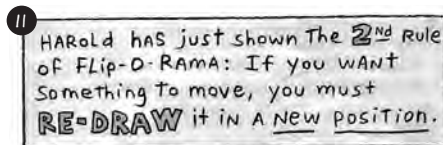 11
HAROLD HAS just shown The 2nd Rule
of FLIP-O-RAMA: If you WANT
Something To move, you must
RE-DRAW it IN A NEW POSITION.